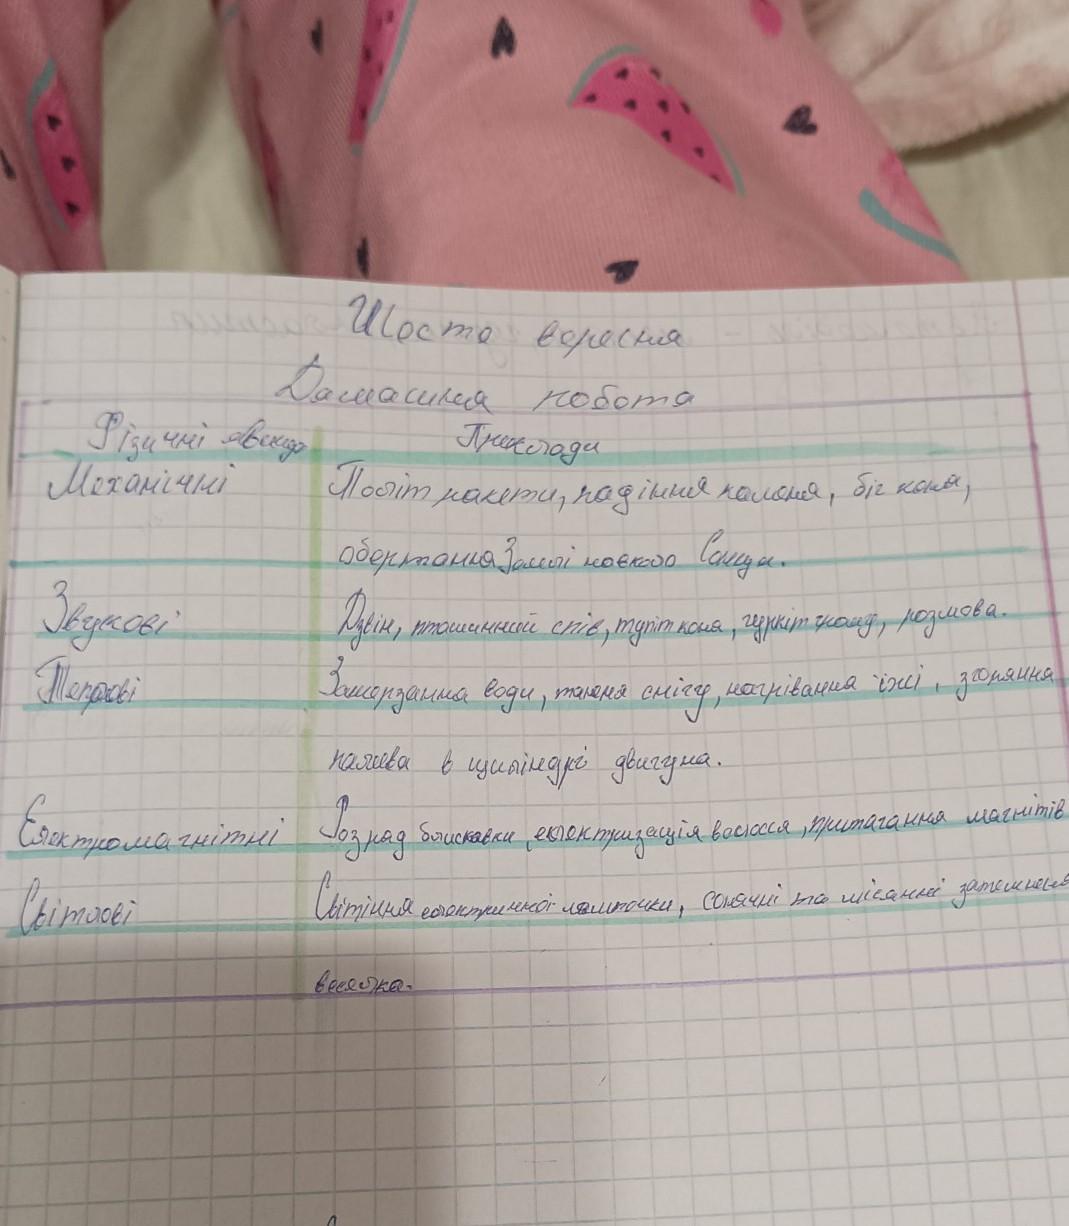 Шосте вересня
Домашня робота
Фізичні явища Приклади
Механічні Політ ракети, падіння каменя, біг коня,
обертання Землі навколо Сонця.
Звукові Дзвін, пташинний спів, тупіт коня, гуркіт грому, розмова.
Теплові Замерзання води, танення снігу, нагрівання їжі, згоряння
палива в циліндрі двигуна.
Електромагнітні Розряд блискавки, електризація волосся, притягання магнітів
Світлові Світіння електричної лампочки, сонячні та місячні затемнення
веселка.